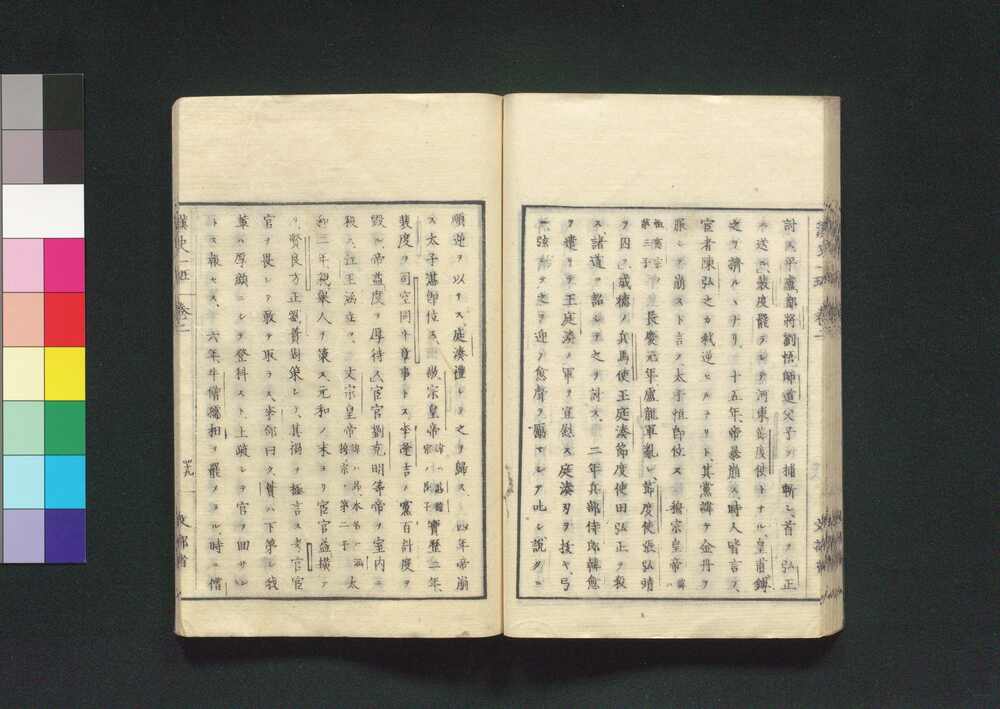 討ス平盧都將劉悟師道父子ヲ捕斬シ首ヲ弘正
ニ送ル裴度罷ラレテ河東節度使トナル皇甫鎛
之ヲ譖ルヽナリ、十五年、帝暴崩ス時人皆言フ、
宦者陳弘之カ弑逆セルナリト、其黨諱テ金丹ヲ
服シテ崩スト言フ太子恒即位ス穆宗皇帝ハ
第三子ナリ長慶元年、盧龍軍亂レ節度使張弘靖
ヲ囚フ成德ノ兵馬使王庭湊節度使田弘正ヲ殺
ス、諸道ニ詔シテ之ヲ討ス、二年兵部侍郎韓愈
ヲ遣リテ王庭湊ノ軍ヲ宣慰ス庭湊刃ヲ拔キ弓
ニ弦シテ之ヲ迎フ愈聲ヲ厲マシテ此ニ說クニ
順逆ヲ以テス、庭湊禮シテ之ヲ歸ス、四年帝崩
ス太子湛即位ス、敬宗皇帝 寶曆二年、
裴度ヲ司空同平章事トス李逢吉ノ黨百計度ヲ
毀ル、帝益度ヲ厚待ス宦官劉克明等帝ヲ室内ニ
殺ス、江王涵立ツ、文宗皇帝 諱ハ昂、本名ハ涵 穆宗ノ第二子 太
和二年親擧人ヲ策ス、元和ノ末ヨリ宦官益橫ナ
リ、賢良方正劉蕡對策シテ、其禍ヲ極言ス考官宦
官ヲ畏レテ敢テ取ラス、李郃曰ク、蕡ハ下第シ我
輩ハ厚顏ニシテ登科スト、上疏シテ官ヲ回サン
トス報セス、六年、牛僧孺相ヲ罷ラル、時ニ僧
漢史一班 卷二
廿九
文部省